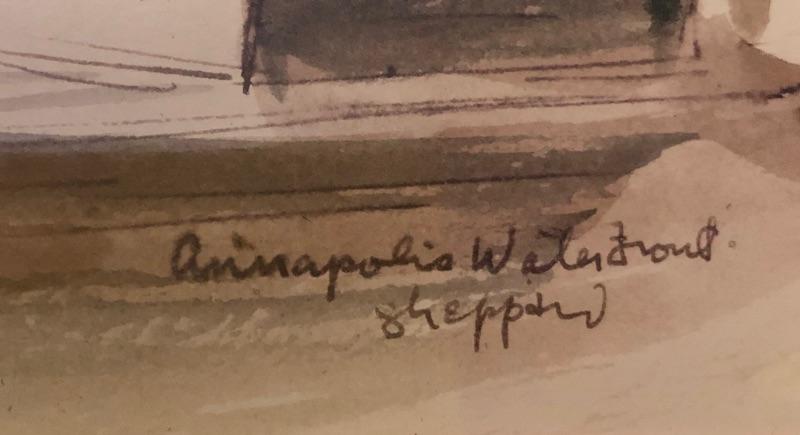 Annapolis Waterfront.
Sheppard